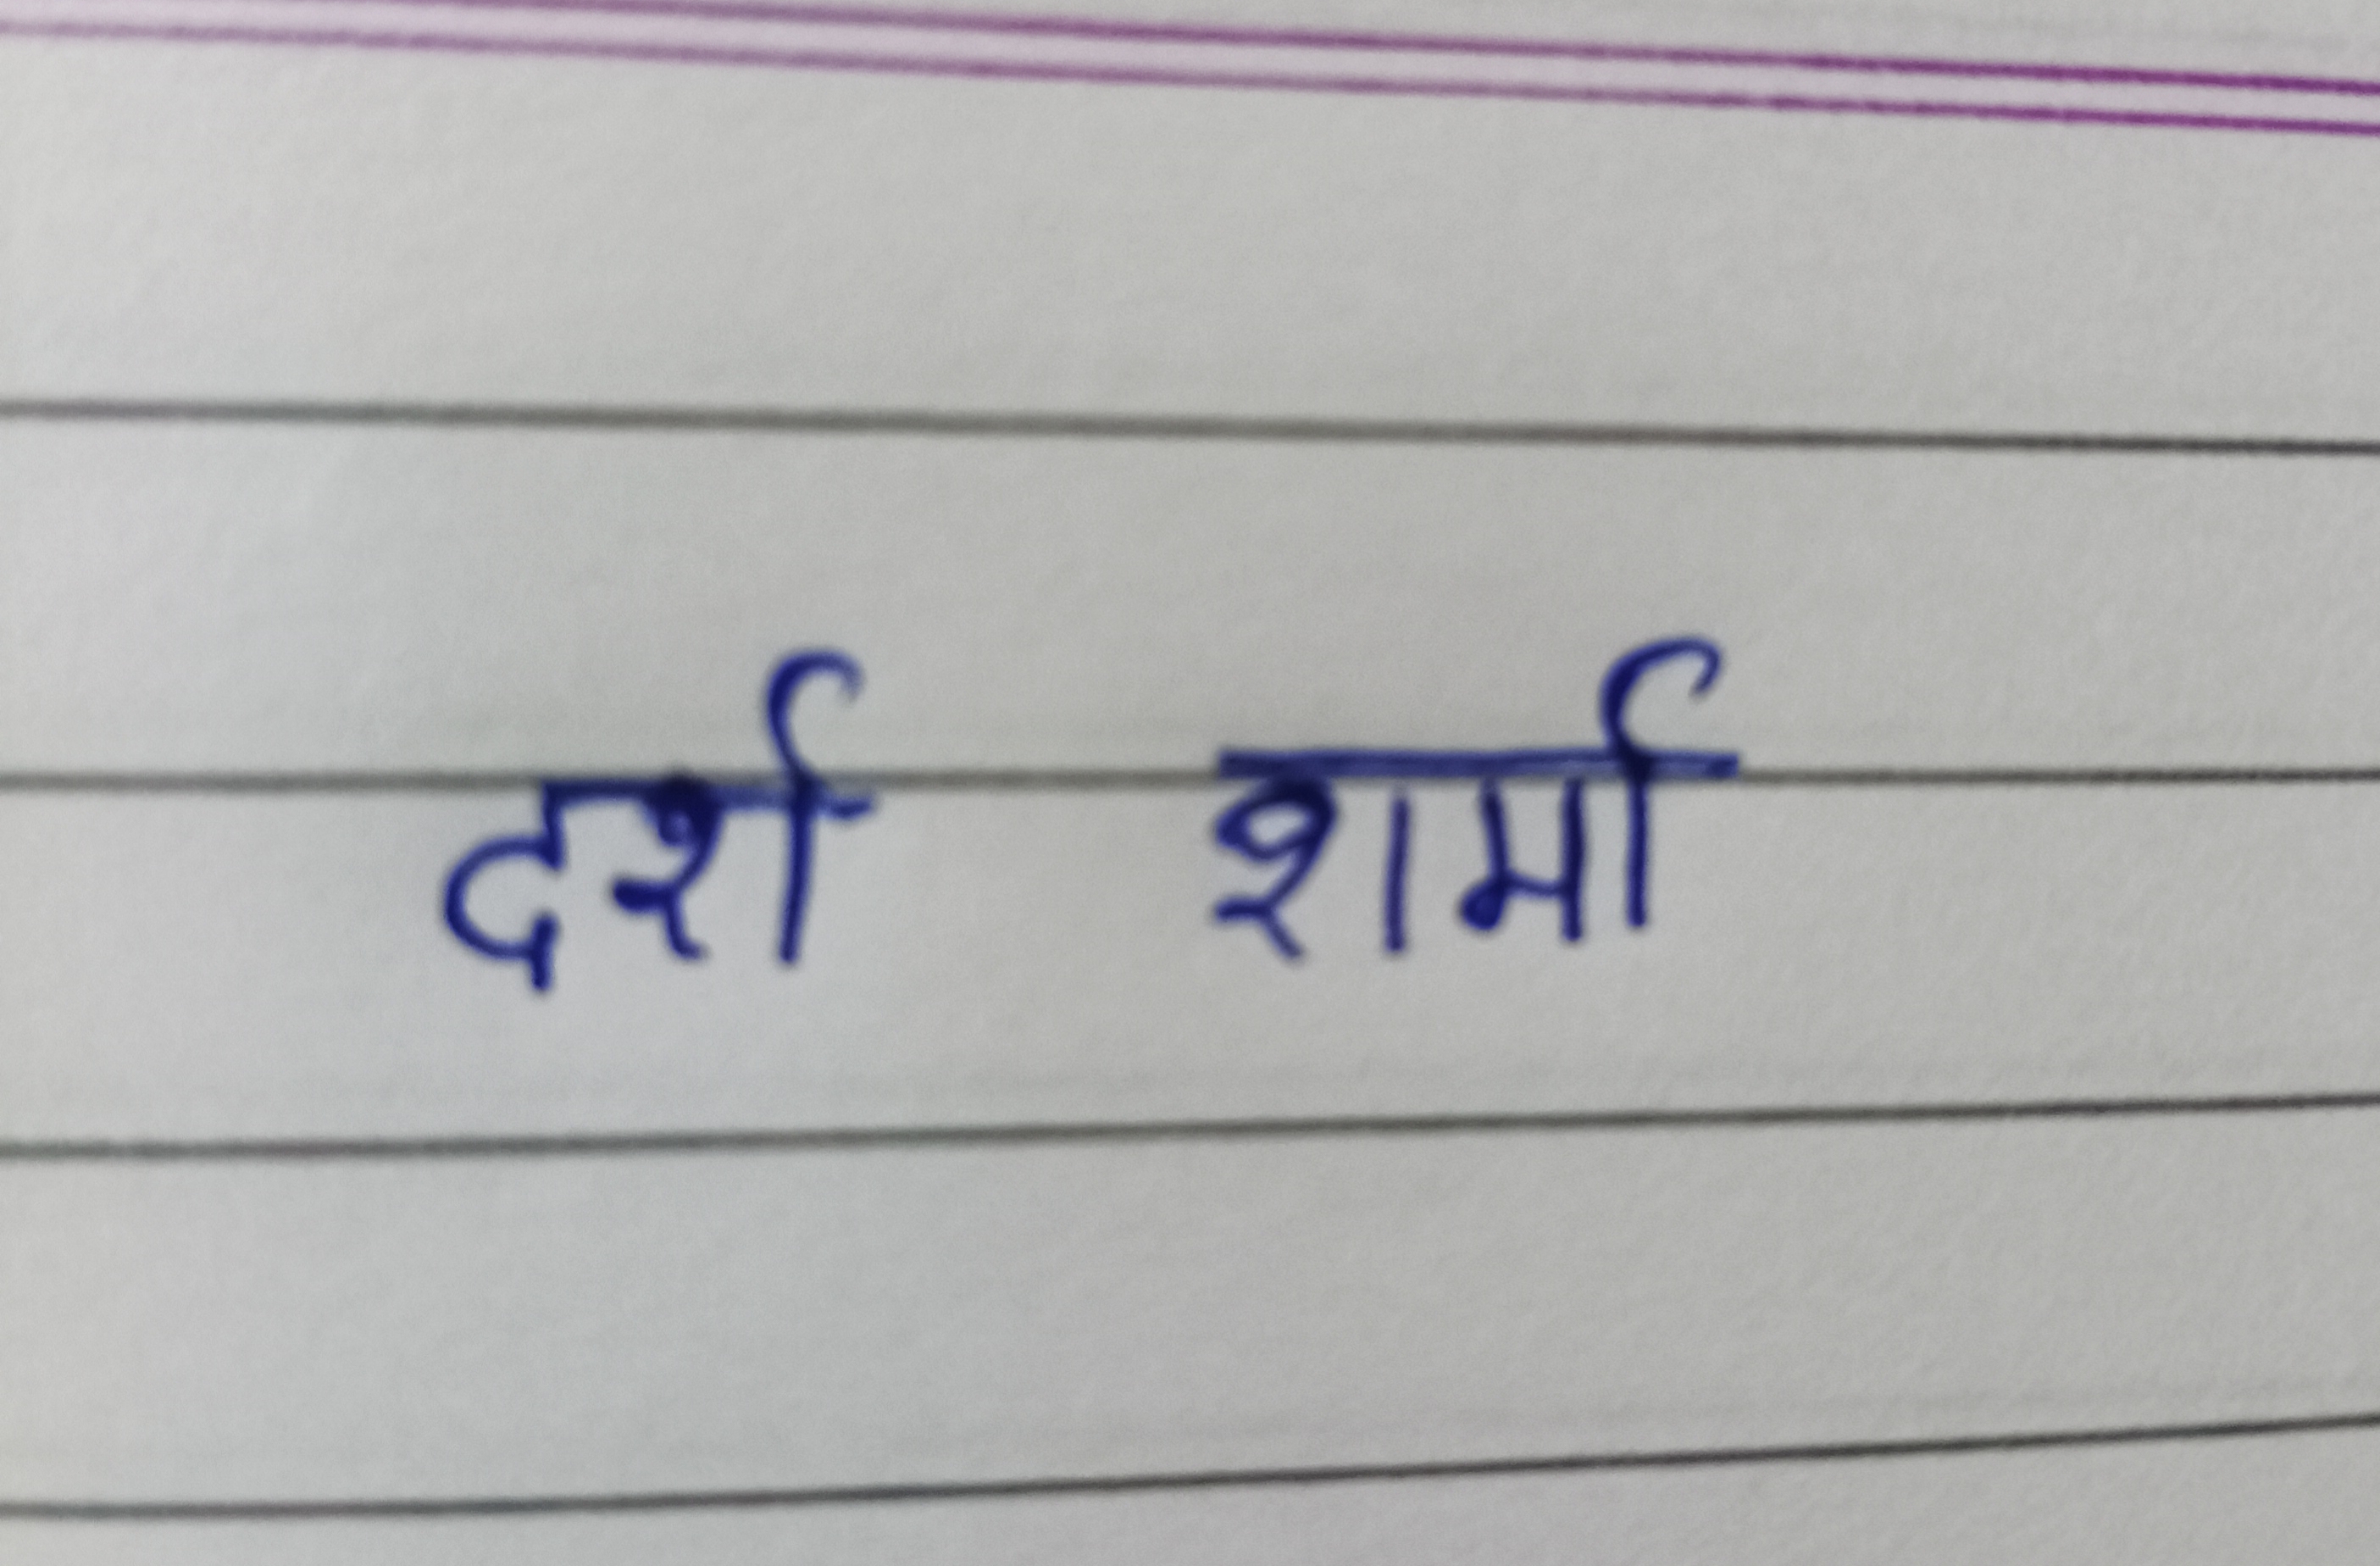 दर्श शर्मा